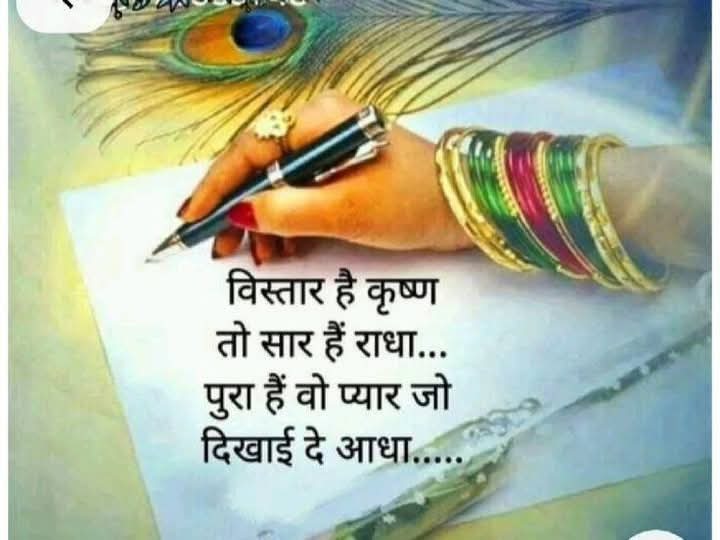 विस्तार है कृष्ण
तो सार हैं राधा...
पुरा हैं वो प्यार जो
दिखाई दे आधा.....